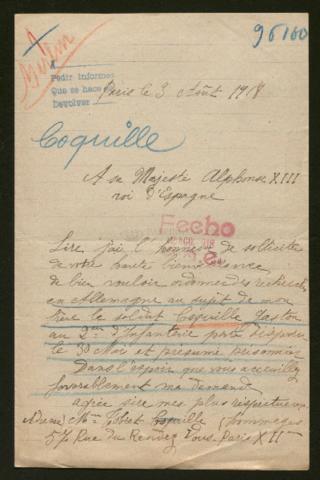 96160
A
Pedir informes
Que se hace
Devolver
Paris le 3 Août 1918
Coquille
A sa Majesté Alphonse XIII
roi d'Espagne
Fecho
Sire j'ai l'honneur de solliciter
de votre haute bienveillance
de bien vouloir ordonner des recherches
en Allemagne au sujet de mon
frère le soldat Coquille Gaston
au 2me d'Infanterie porté disparu
le 30 Mai et présumé prisonnier
Dans l'espoir que vous accueillez
favorablement ma demande
agrée sire mes plus respectueux
Adresse Mme Coquille hommages
57 Rue du Rendez Vous Paris XII